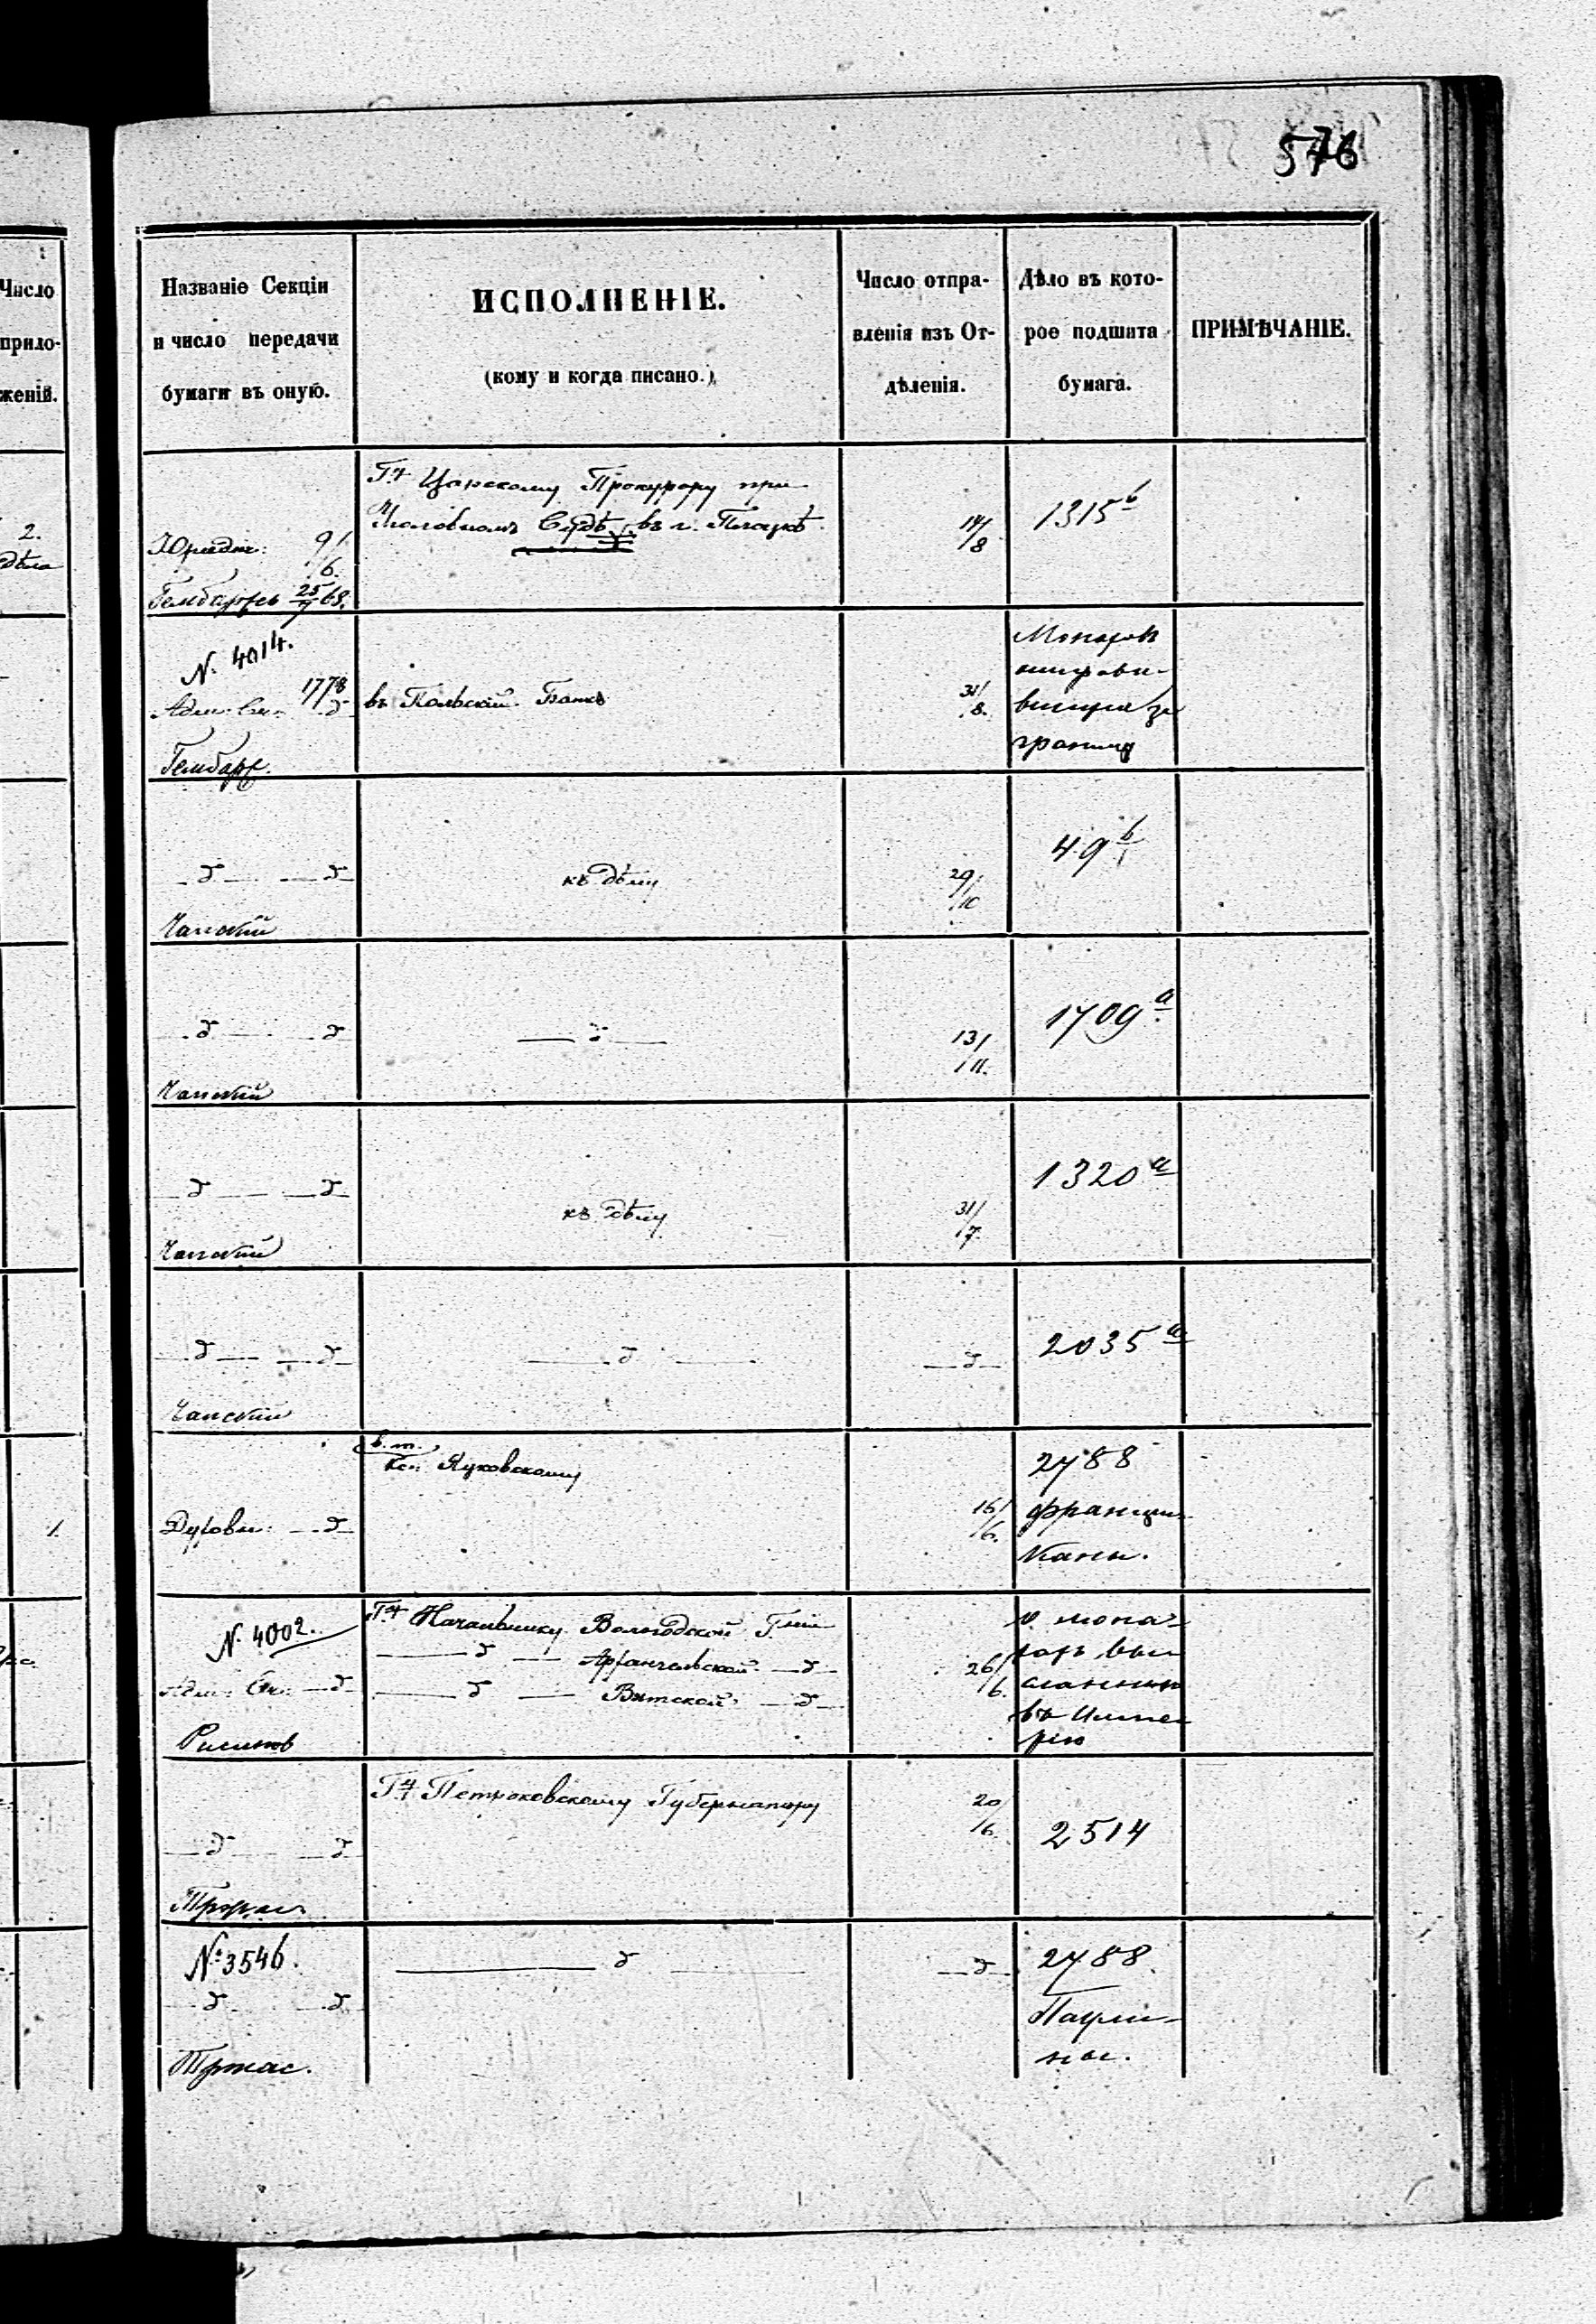 576
Число
прило-
женій.
Названіе Секціи
и число передачи
бумаги въ оную.
ИСПОЛНЕНІЕ.
(кому и когда писано.)
Число отпра-
вленія изъ От-
дѣленія.
Дѣло въ кото-
рое подшита
бумага.
ПРИМѢЧАНІЕ.
2.
дѣла
Юридич: 9/6.
25/7 68.
Г.
Прокурору при
Уголовномъ Судѣ въ г. Плоцкѣ
14/8
1315 b
N. 4014.
1778
Адм: Сек: д
въ Польскій Банкъ
31/8.
Монахов
вшихъ за
границу
д д
Чапскій
къ дѣлу
29/10
49 b
д д
Чапскій
д
13/11.
1709 a
д д
Чапскій
къ дѣлу
31/7
1320 a
д д
Чапскій
д
д
2035 a
1.
Духовн: д
в. т.
Кс: Жуковскому
16/6.
2788
францис
каны.
N. 4002.
Адм: Сек: д
Г. Начальнику Вологодской Г.
д Архангельской д
д Вятской д
26/6.
о мона-
хахъ выс
ланныхъ
въ Импе
рію
д д
Г. Петроковскому Губернатору
20/6.
2514
№ 3546.
д д
Тржас.
д
д
2788.
Паули-
ны.